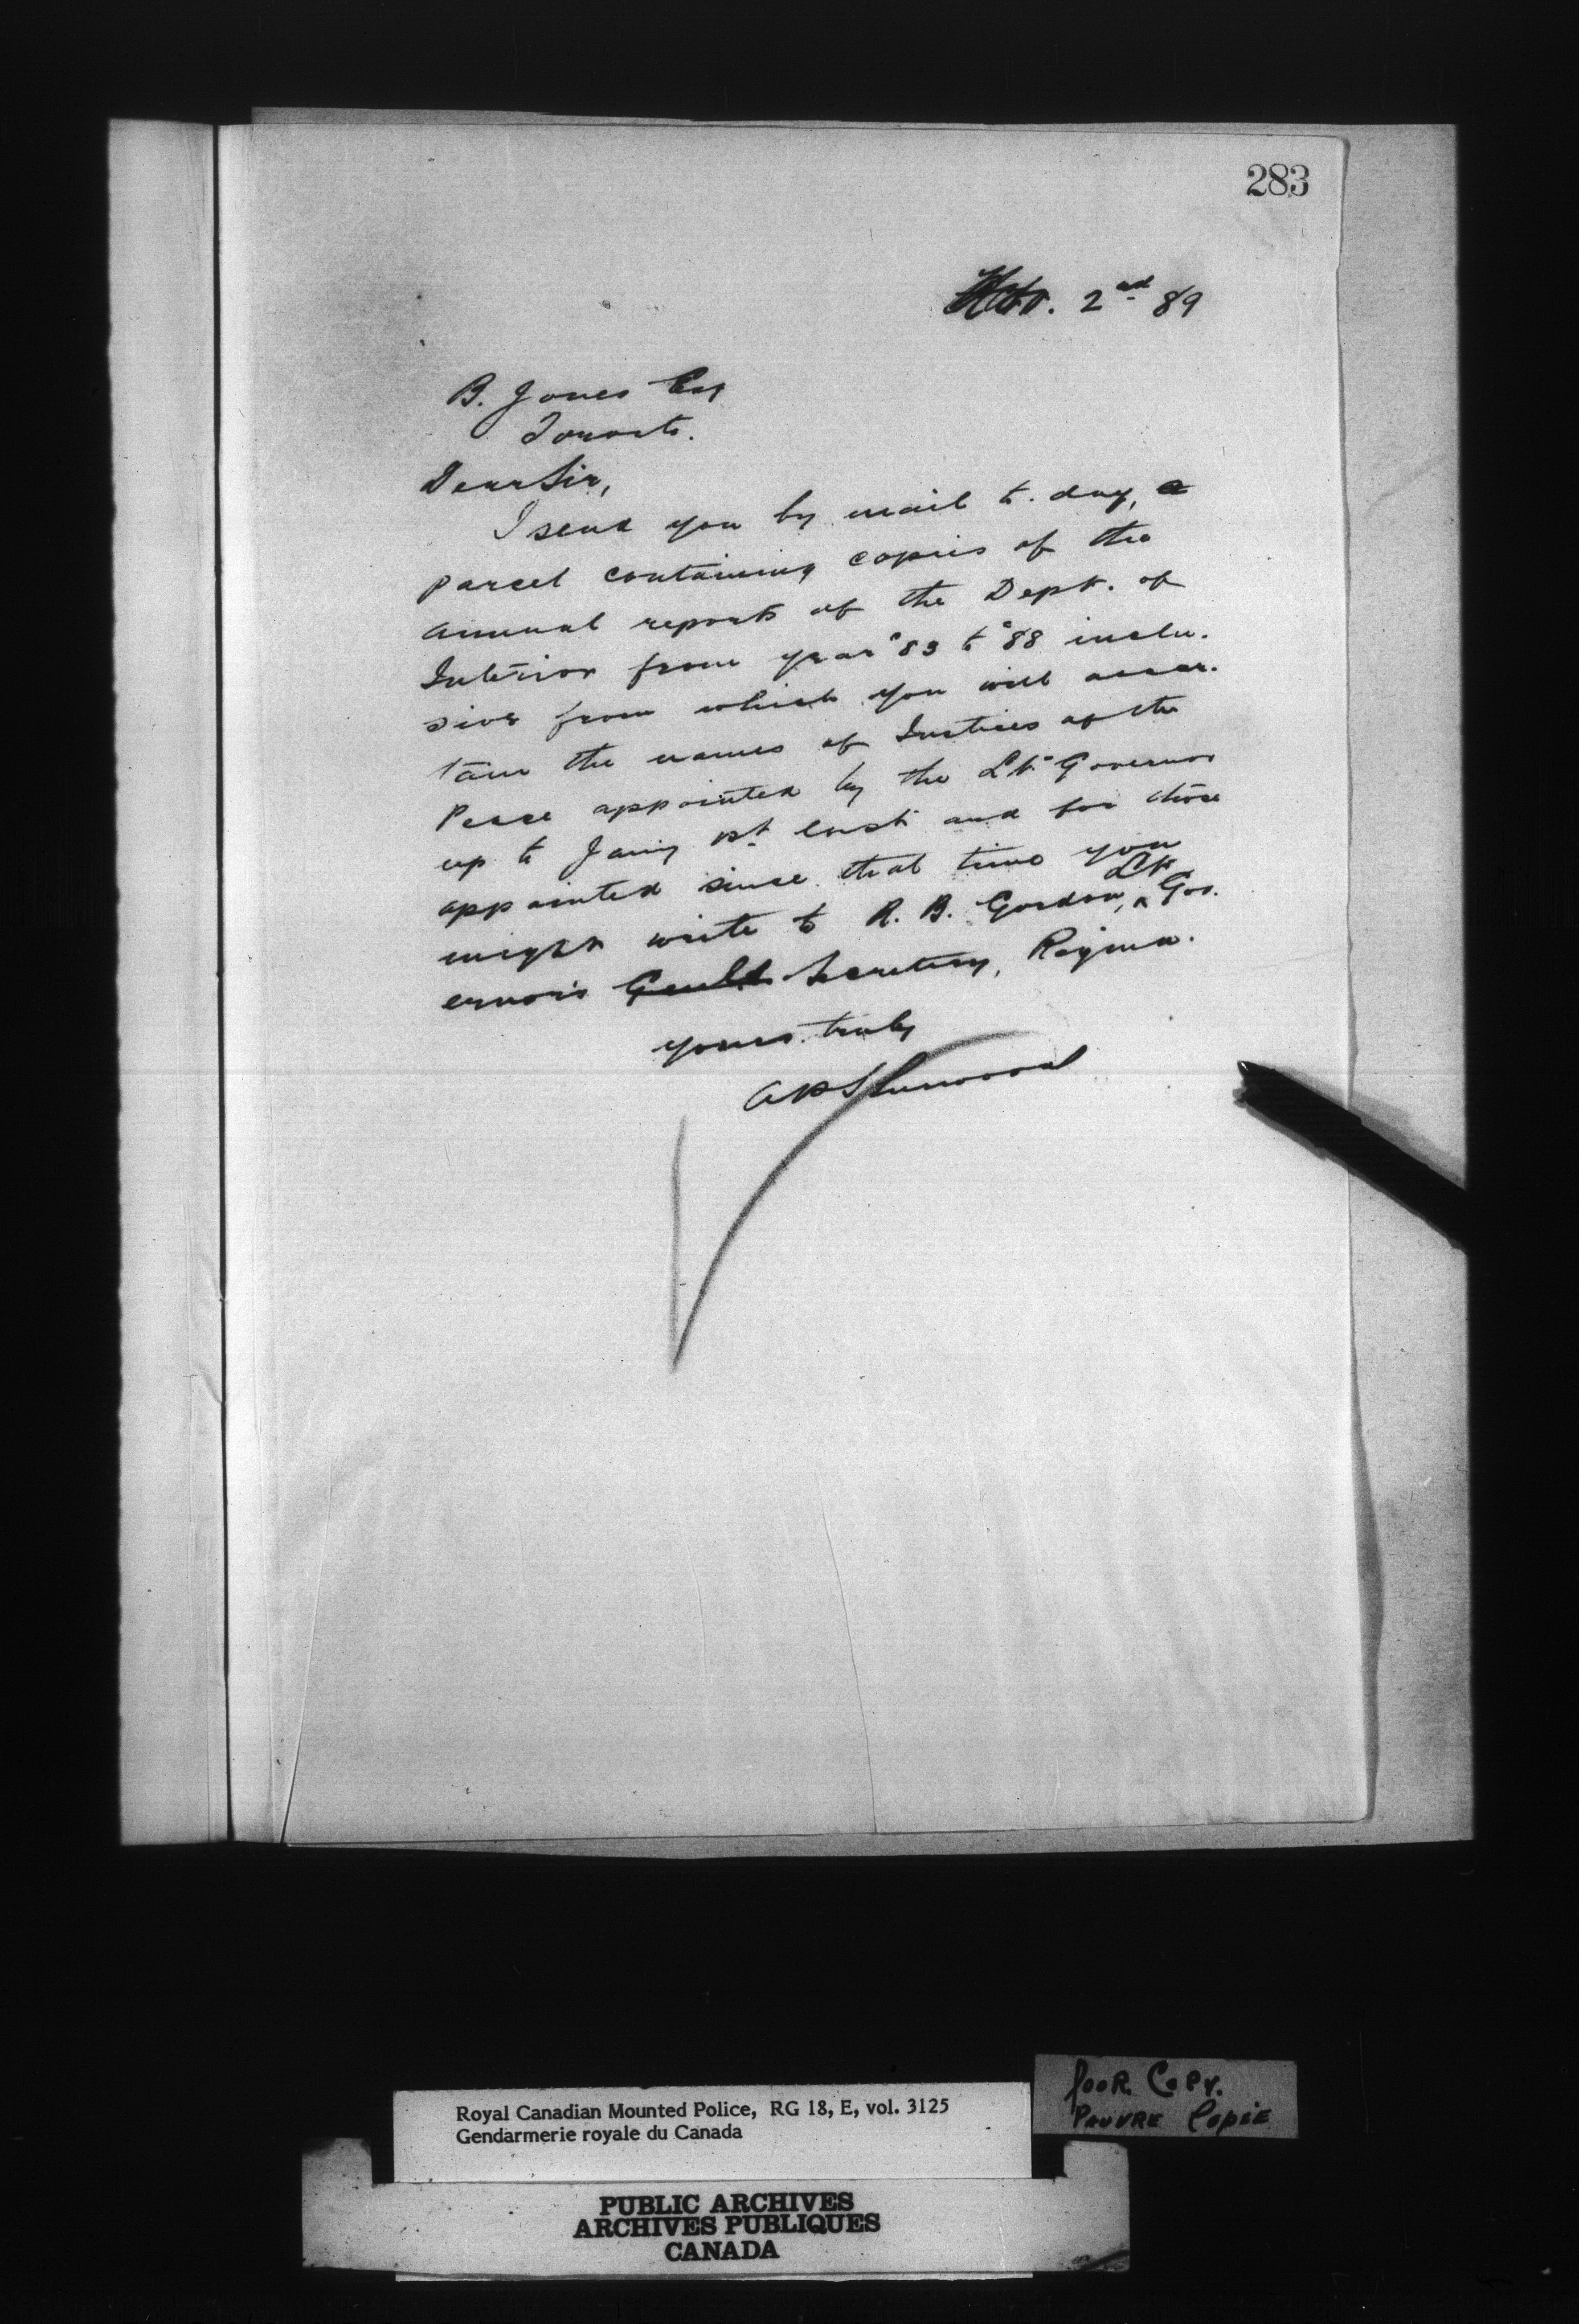 283
2nd 89
B. Jones Esq
Toronto.
Dear Sir,
I send you by mail to-day, a
parcel containing copies of the
annual reports of the Dept. of
Interior from year '83 to '88 inclu-
sive from which you will ascer-
tain the names of Justices of the
Peace appointed by the Lt. Governor
up to Jany 1st last and for those
appointed since that time you
might write to R. B. Gordon, Lt Gov-
ernor's Secretary, Regina.
yours truly
A P Sherwood
Poor Copy.
Pauvre Copie
Royal Canadian Mounted Police, RG 18, E, vol. 3125
Gendarmerie royale du Canada
PUBLIC ARCHIVES
ARCHIVES PUBLIQUES
CANADA